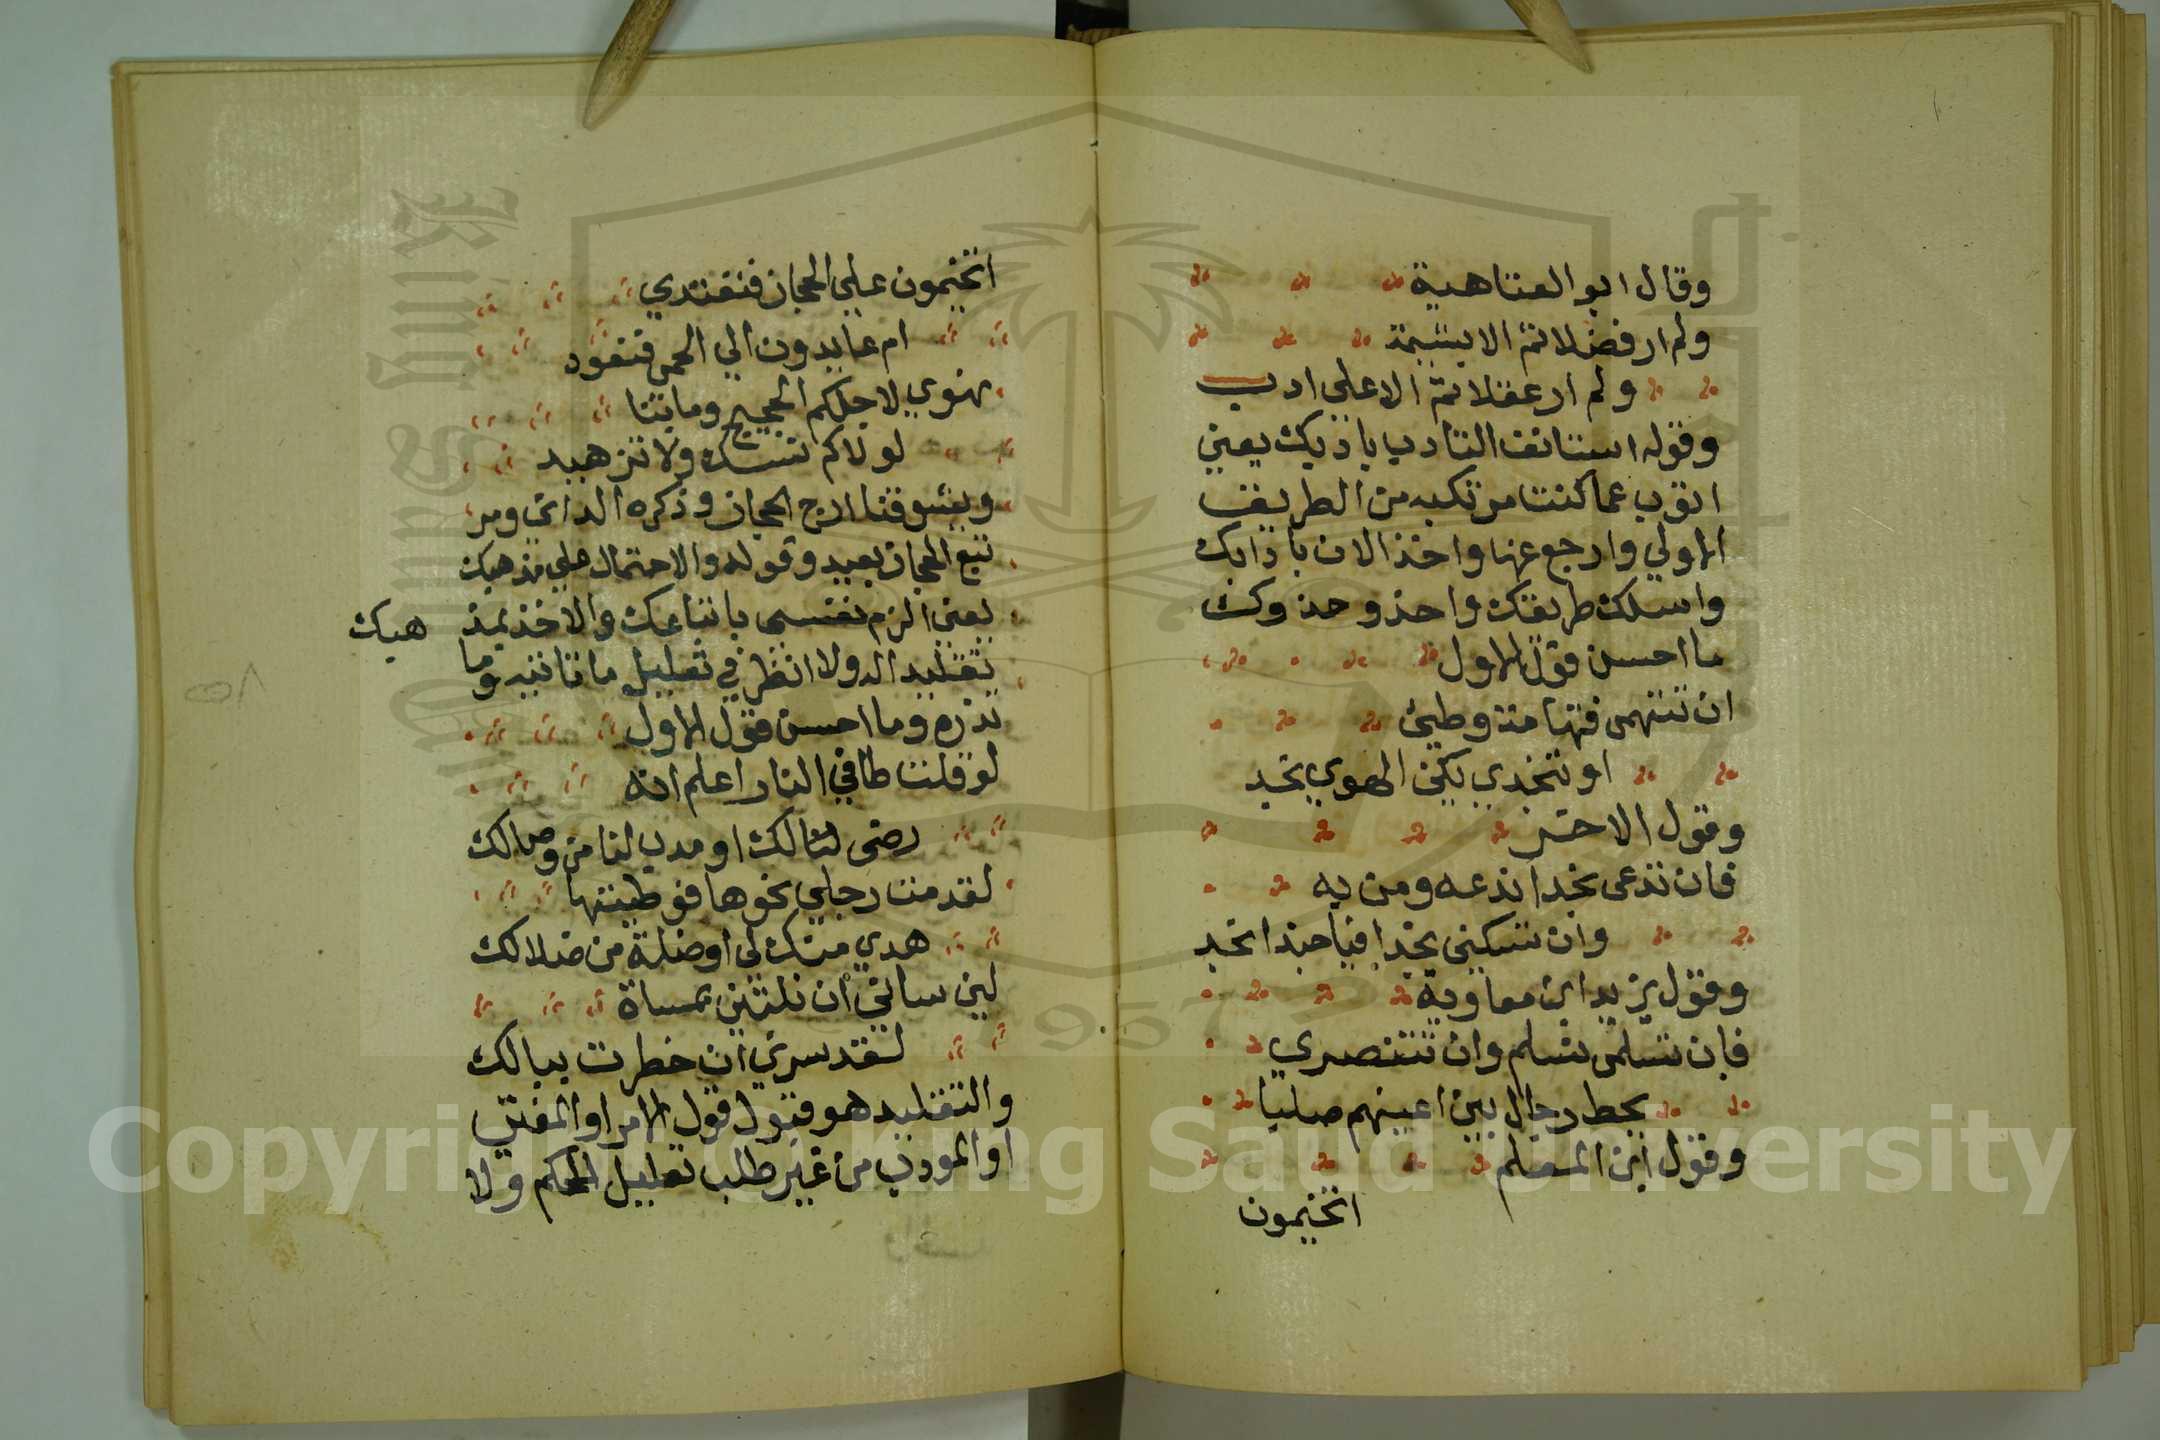 وقال ابو العتاهية
ولم ار فضلا تم الا بشيمة
ولم ار عقلا تم الا على ادب
وقوله استانف التادب باذيك يعني
اتوب عما كنت مرتكبه من الطريق
الاولي وارجع عنها واخذ الان بادابك
واسلك طريقتك واحذو حذوك
ما احسن قول الاول
ان تتهمى فتهامة وطيئ
او تنجدي يكن الهوي نجد
وقول الاخر
فان تدعى نجدا ندعه ومن به
وان تسكنى نجدا فيا حبذا نجد
وقول يزيد ابن معاوية
فان تسلمى نسلم وان تتنصري
يحط رجال بين اعينهم صلبا
وقول ابن المعلم
اتخيمون
اتخيمون علي الحجاز فنقتدي
ام عايدون الي الحمى فنعود
نهوي لاجلكم الحجيج ومابنا
لولاكم نسك ولا تزهيد
ويشوقنا ارج الحجاز وذكره الداني ومر
تبع الحجاز بعيد وقوله والاحتمال على مذهبك
يعني الزم نفسى باتباعك والاخذ بمذ
هبك
تقليد الدولا انظر في تعليل ما تاتيه وما
تذره وما احسن قول الاول
لو قلت طا في النار اعلم انه
رضى لك او مدن لنا من وصالك
لقدمت رجلي نحوها فوطيتها
هدي منك لى او ضلة من ضلالك
لين ساني ان نلتني بمساة
لقد سرني ان خطرت ببالك
والتقليد هو قبول قول الامر او المفتي
او المودب من غير طلب تعليل الحكم ولا
Copyright © King Saud University
1957